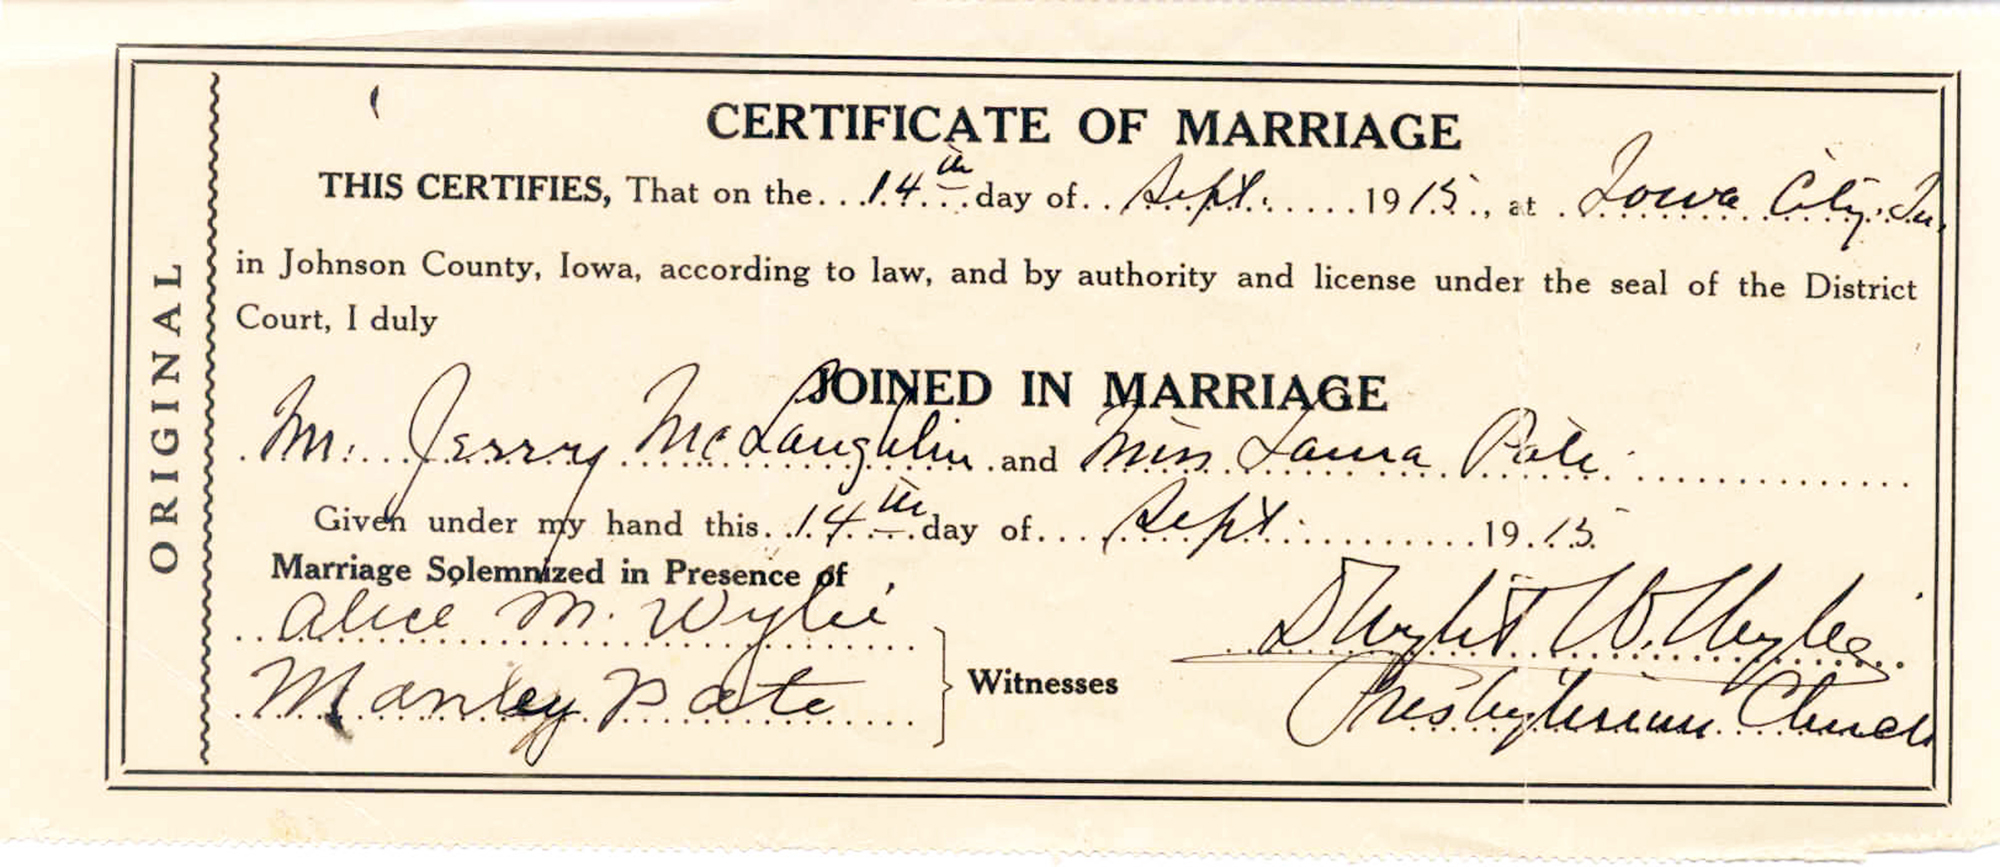 ORIGINAL
CERTIFICATE OF MARRIAGE
THIS CERTIFIES, That on the 14th day of Sept. 1915, at Iowa City, Ia.
in Johnson County, Iowa, according to law, and by authority and license under the seal of the District
Court, I duly
JOINED IN MARRIAGE
Mr. Jerry McLaughlin and Miss Laura Pate
Given under my hand this 14th day of Sept. 1915
Marriage Solemnized in Presence of
Alice M. Wylie
Dwight W. Wylie
Manley Pate
Witnesses
Presbyterian Church